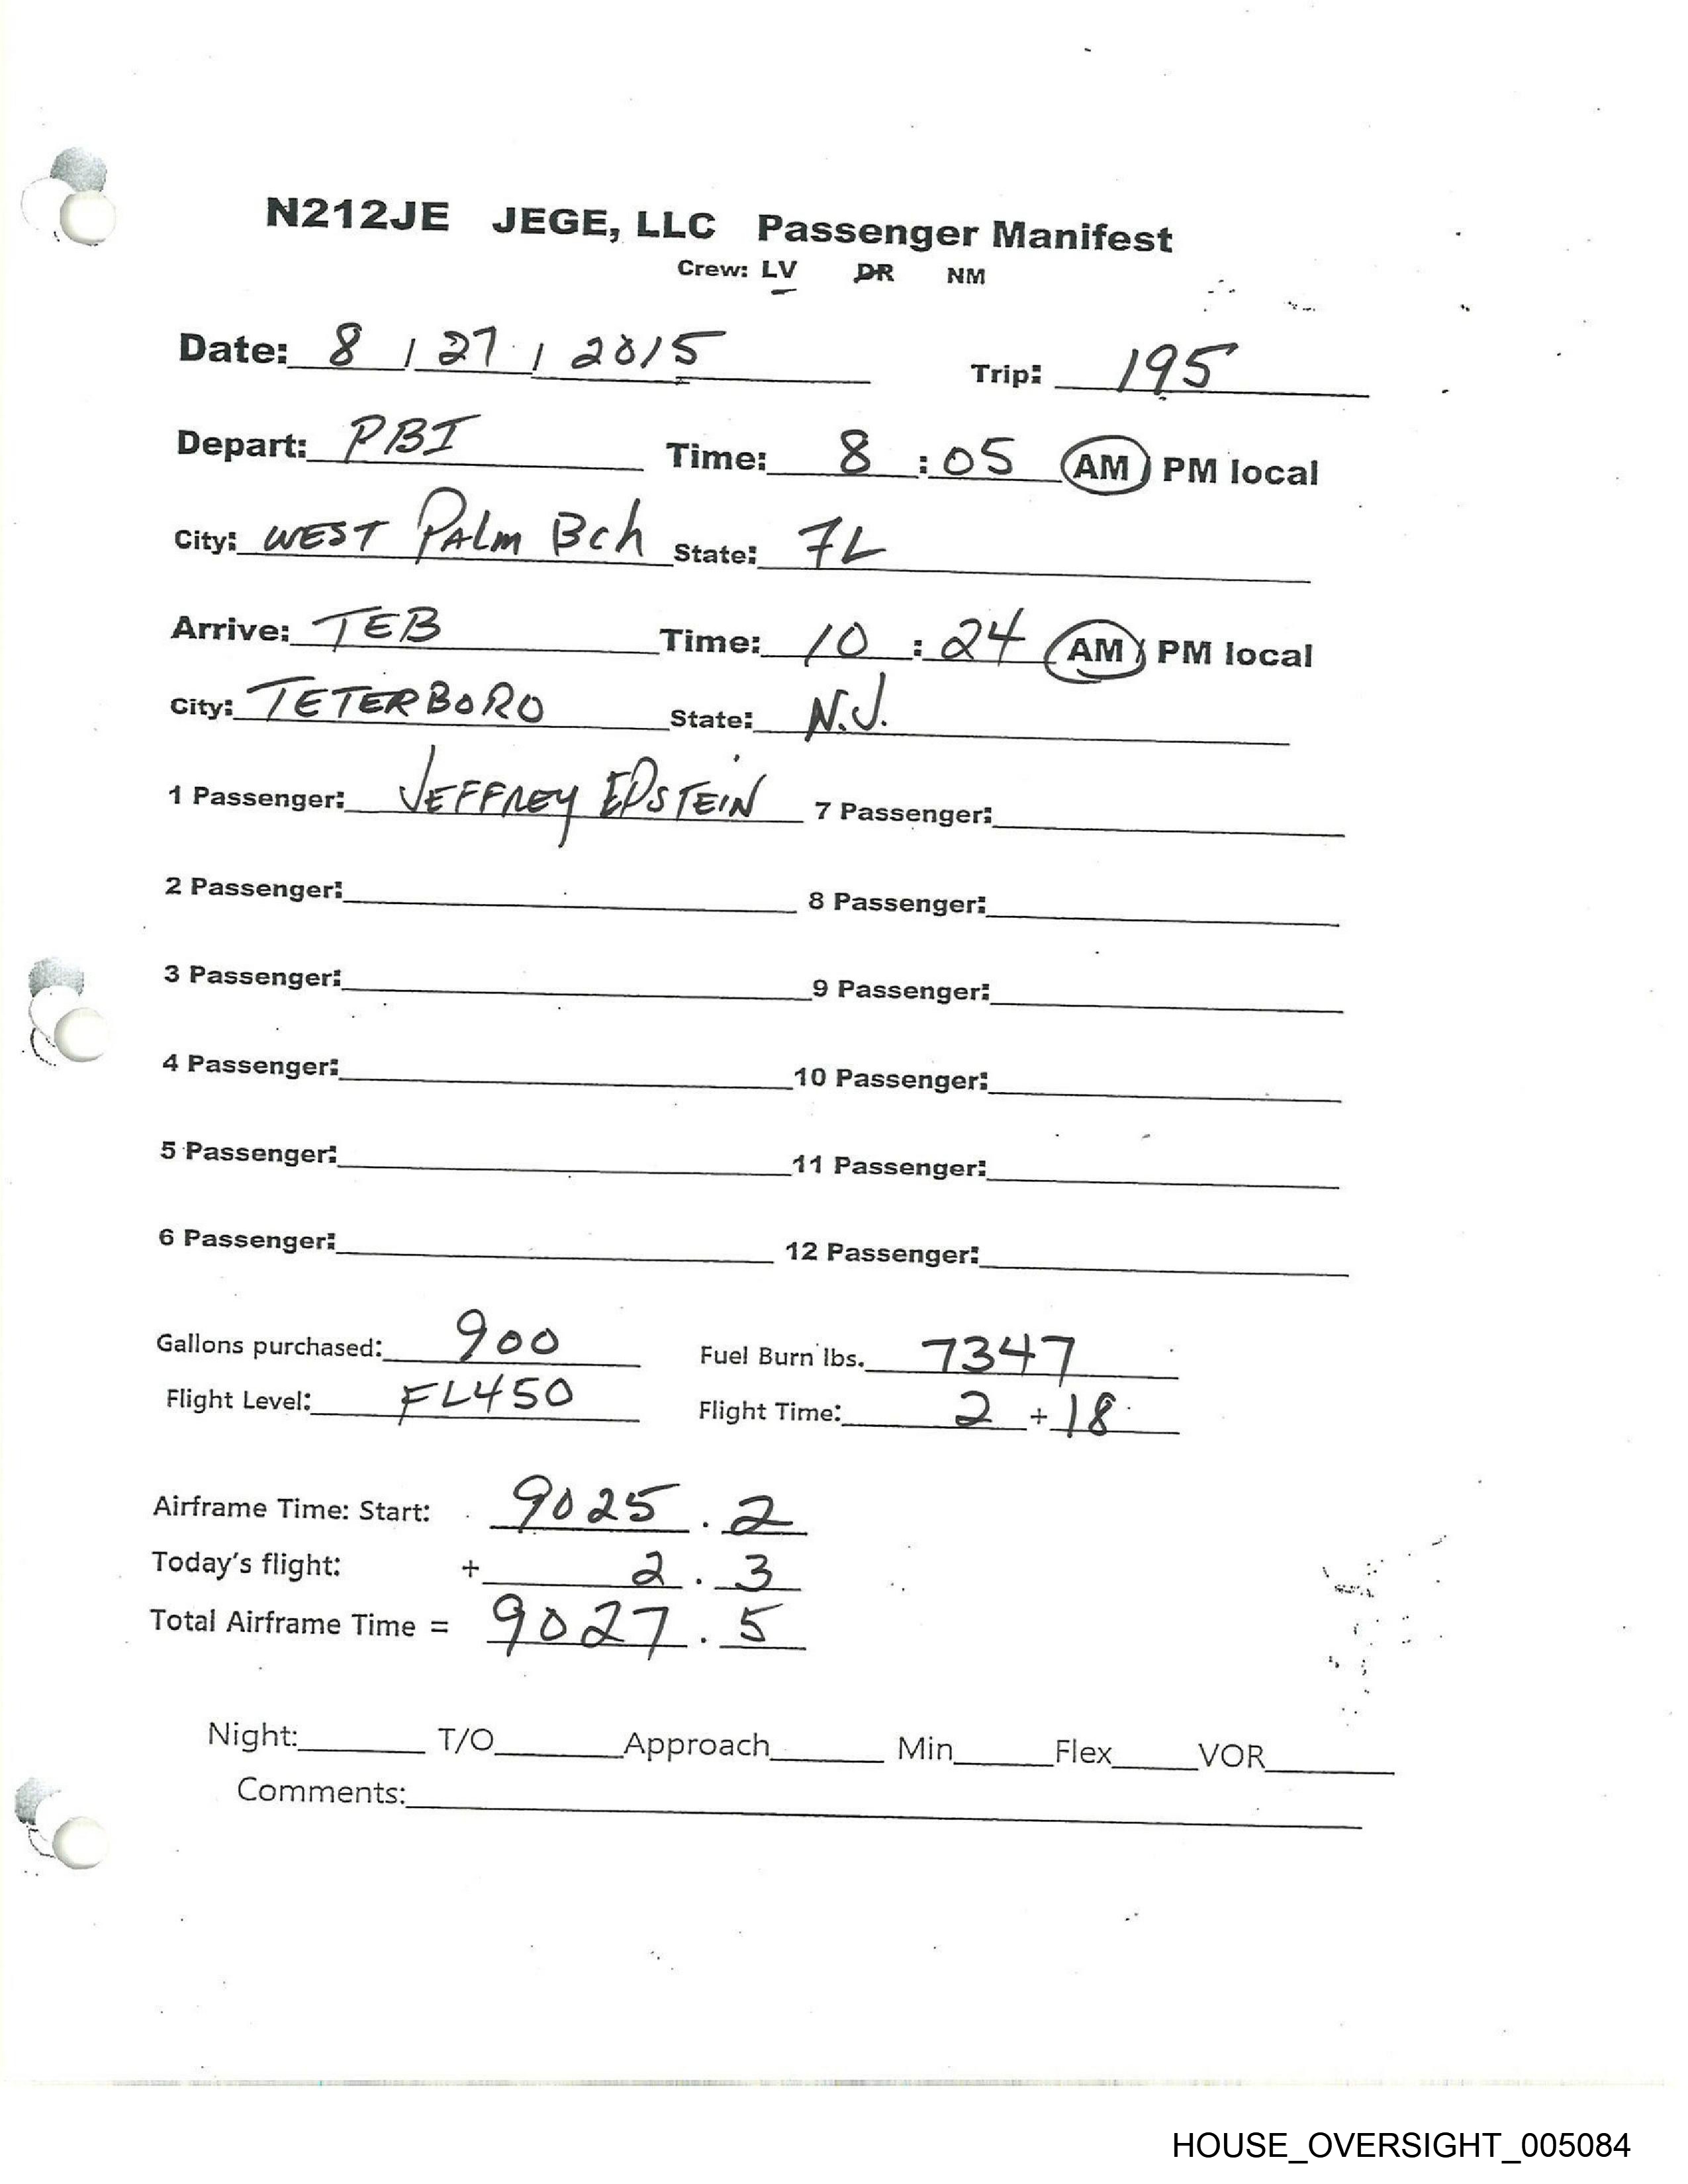 N212JE JEGE, LLC Passenger Manifest
Crew: LV DR NM
Date: 8 / 27 / 2015 Trip: 195
Depart: PBI Time: 8 : 05 AM / PM local
City: WEST PALM BCH State: FL
Arrive: TEB Time: 10 : 24 AM / PM local
City: TETERBORO State: N.J.
1 Passenger: JEFFREY EPSTEIN 7 Passenger:
2 Passenger: 8 Passenger:
3 Passenger: 9 Passenger:
4 Passenger: 10 Passenger:
5 Passenger: 11 Passenger:
6 Passenger: 12 Passenger:
Gallons purchased: 900 Fuel Burn lbs. 7347
Flight Level: FL450 Flight Time: 2 + 18
Airframe Time: Start: 9025 . 2
Today's flight: + 2 . 3
Total Airframe Time = 9027 . 5
Night: T/O Approach Min Flex VOR
Comments:
HOUSE_OVERSIGHT_005084